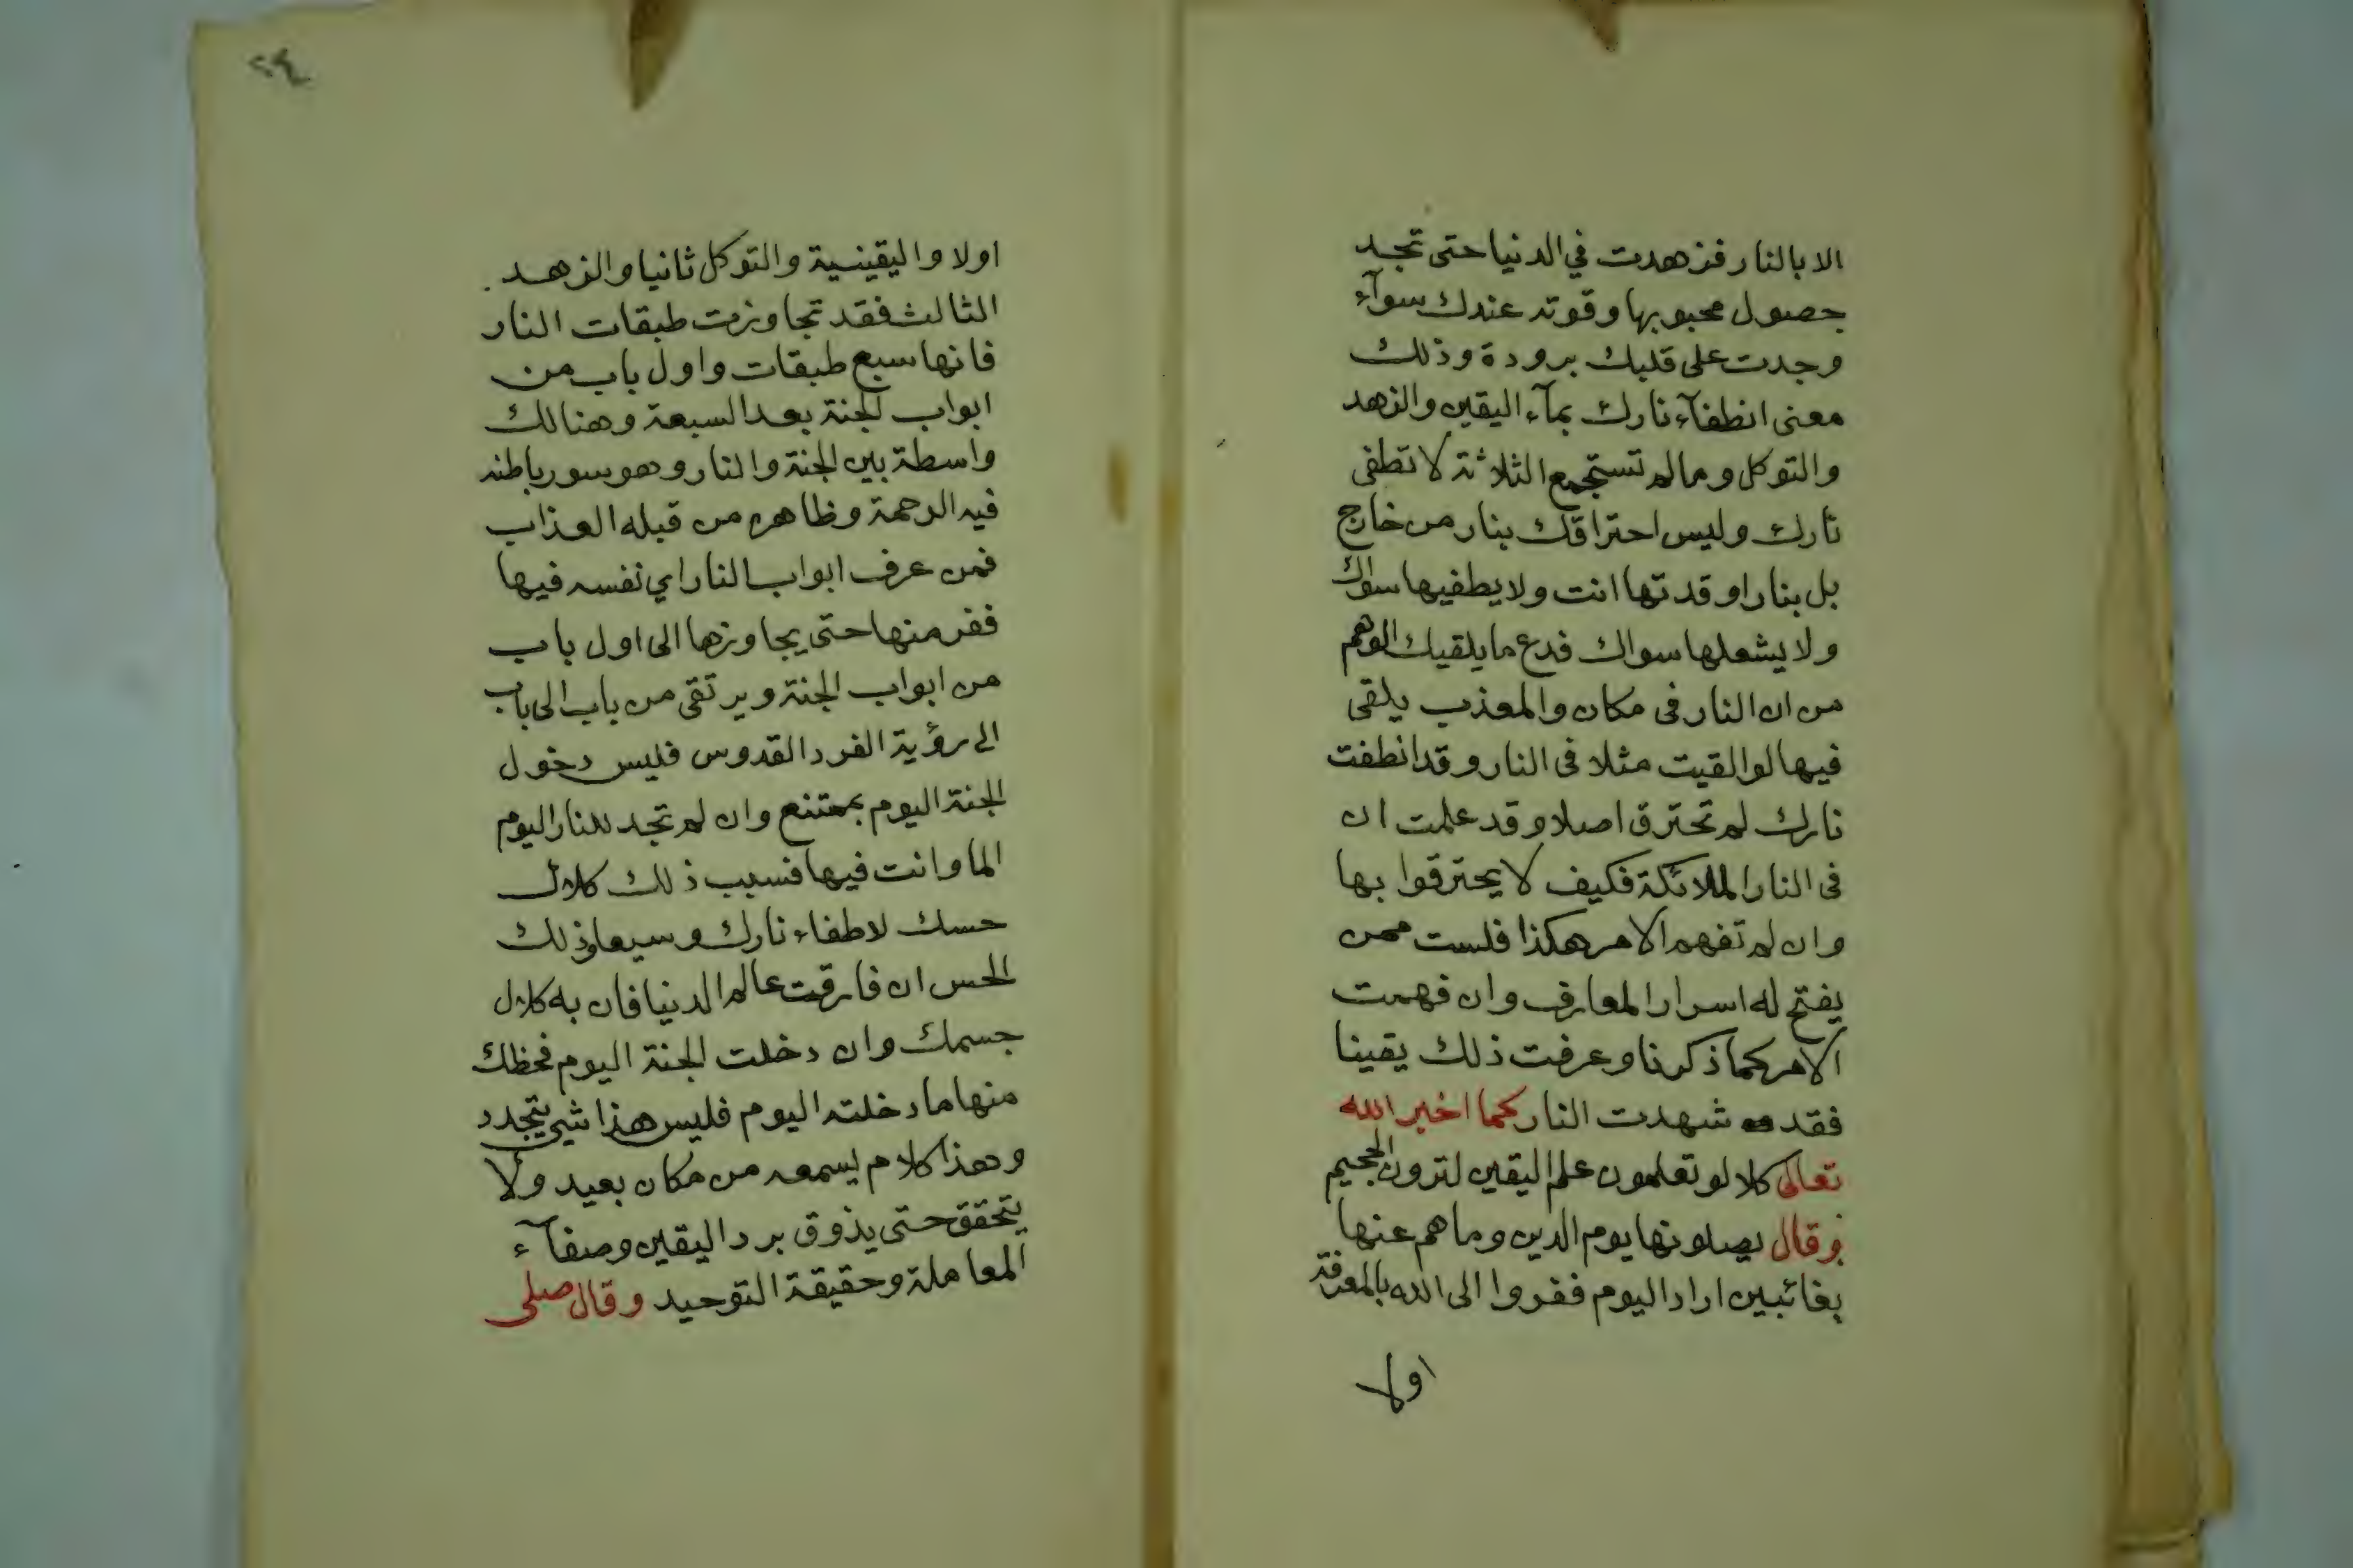 الا بالنار فزهدت في الدنيا حتى تجد
حصول محبوبها وقوته عندك سوآء
وجدت على قلبك برودة وذلك
معنى انطفآء نارك بمآء اليقين والزهد
والتوكل وما لم تستجمع الثلاثة لا تطفى
نارك وليس احتراقك بنار من خارج
بل بنار اوقدتها انت ولا يطفيها سواك
ولا يشعلها سواك فدع ما يلقيك الوهم
من ان النار فى مكان والمعذب يلقى
فيها لو القيت مثلا فى النار وقد انطفت
نارك لم تحترق اصلا وقد علمت ان
فى النار الملائكة فكيف لا يحترقوا بها
وان لم تفهم الامر هكذا فلست ممن
يفتح له اسرار المعارف وان فهمت
الامر كما ذكرنا وعرفت ذلك يقينا
فقد شهدت النار كما اخبر الله
تعالى كلا لو تعلمون علم اليقين لترون الجحيم
وقال يصلونها يوم الدين وما هم عنها
بغائبين اراد اليوم ففروا الى الله بالمعرفة
اولا
٢٤
اولا واليقينية والتوكل ثانيا والزهد
الثالث فقد تجاوزت طبقات النار
فانها سبع طبقات واول باب من
ابواب الجنة بعد السبعة وهنالك
واسطة بين الجنة والنار وهو سور باطنه
فيه الرحمة وظاهره من قبله العذاب
فمن عرف ابواب النار اي نفسه فيها
ففر منها حتى يجاوزها الى اول باب
من ابواب الجنة ويرتقى من باب الى باب
الى رؤية الفرد القدوس فليس دخول
الجنة اليوم بممتنع وان لم تجد للنار اليوم
الما وانت فيها فسبب ذلك كلال
حسك لاطفاء نارك وسيعاد ذلك
الحس ان فارقت عالم الدنيا فان به كلال
جسمك وان دخلت الجنة اليوم فحظك
منها ما دخلته اليوم فليس هذا شئ يتجدد
وهذا كلام يسمعه من مكان بعيد ولا
يتحقق حتى يذوق برد اليقين وصفآء
المعاملة وحقيقة التوحيد وقال صلى